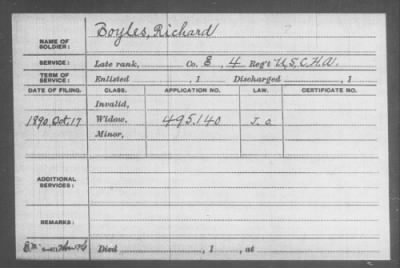 NAME OF SOLDIER: Boyles, Richard
SERVICE: Late rank, Co. E, 4 Reg't U.S.C.H.A.
TERM OF SERVICE: Enlisted , 1 Discharged , 1
DATE OF FILING. CLASS. APPLICATION NO. LAW. CERTIFICATE NO.
Invalid,
1890, Oct. 17 Widow, 495.140
Minor,
ADDITIONAL SERVICES:
REMARKS:
Died , 1 , at